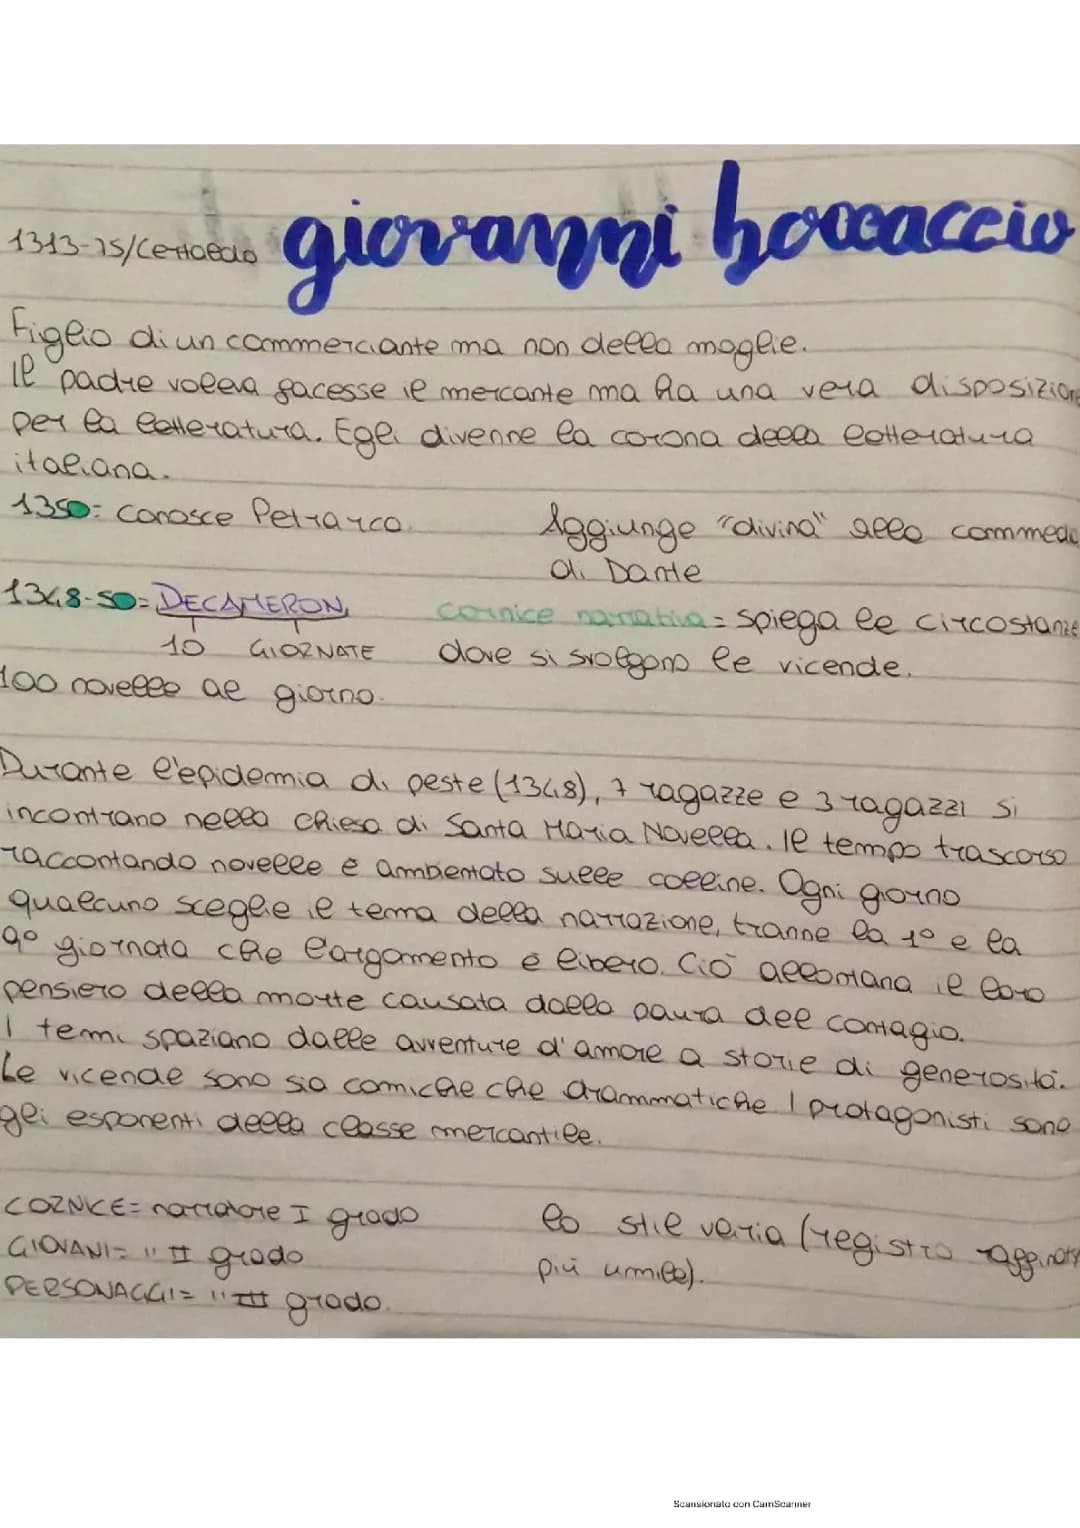 giovanni boccaccio
1313-75/Certaldo
Figlio di un commerciante ma non della moglie.
Il padre voleva facesse il mercante ma ha una vera disposizione
per la letteratura. Egli divenne la corona della letteratura
italiana.
1350= conosce Petrarca.
Aggiunge "divina" alla commedia
di Dante
1348-50= DECAMERON
10 GIORNATE
100 novelle al giorno.
cornice narrativa = spiega le circostanze
dove si svolgono le vicende.
Durante l'epidemia di peste (1348), 7 ragazze e 3 ragazzi si
incontrano nella chiesa di Santa Maria Novella. Il tempo trascorso
raccontando novelle è ambientato sulle colline. Ogni giorno
qualcuno sceglie il tema della narrazione, tranne la 1° e la
9° giornata che l'argomento è libero. Ciò allontana il loro
pensiero della morte causata dalla paura del contagio.
I temi spaziano dalle avventure d'amore a storie di generosità.
Le vicende sono sia comiche che drammatiche I protagonisti sono
gli esponenti della classe mercantile.
CORNICE= narratore I grado
GIOVANI= " II grado
PERSONAGGI= " III grado.
lo stile varia (registro raffinato
più umile).
Scansionato con CamScanner